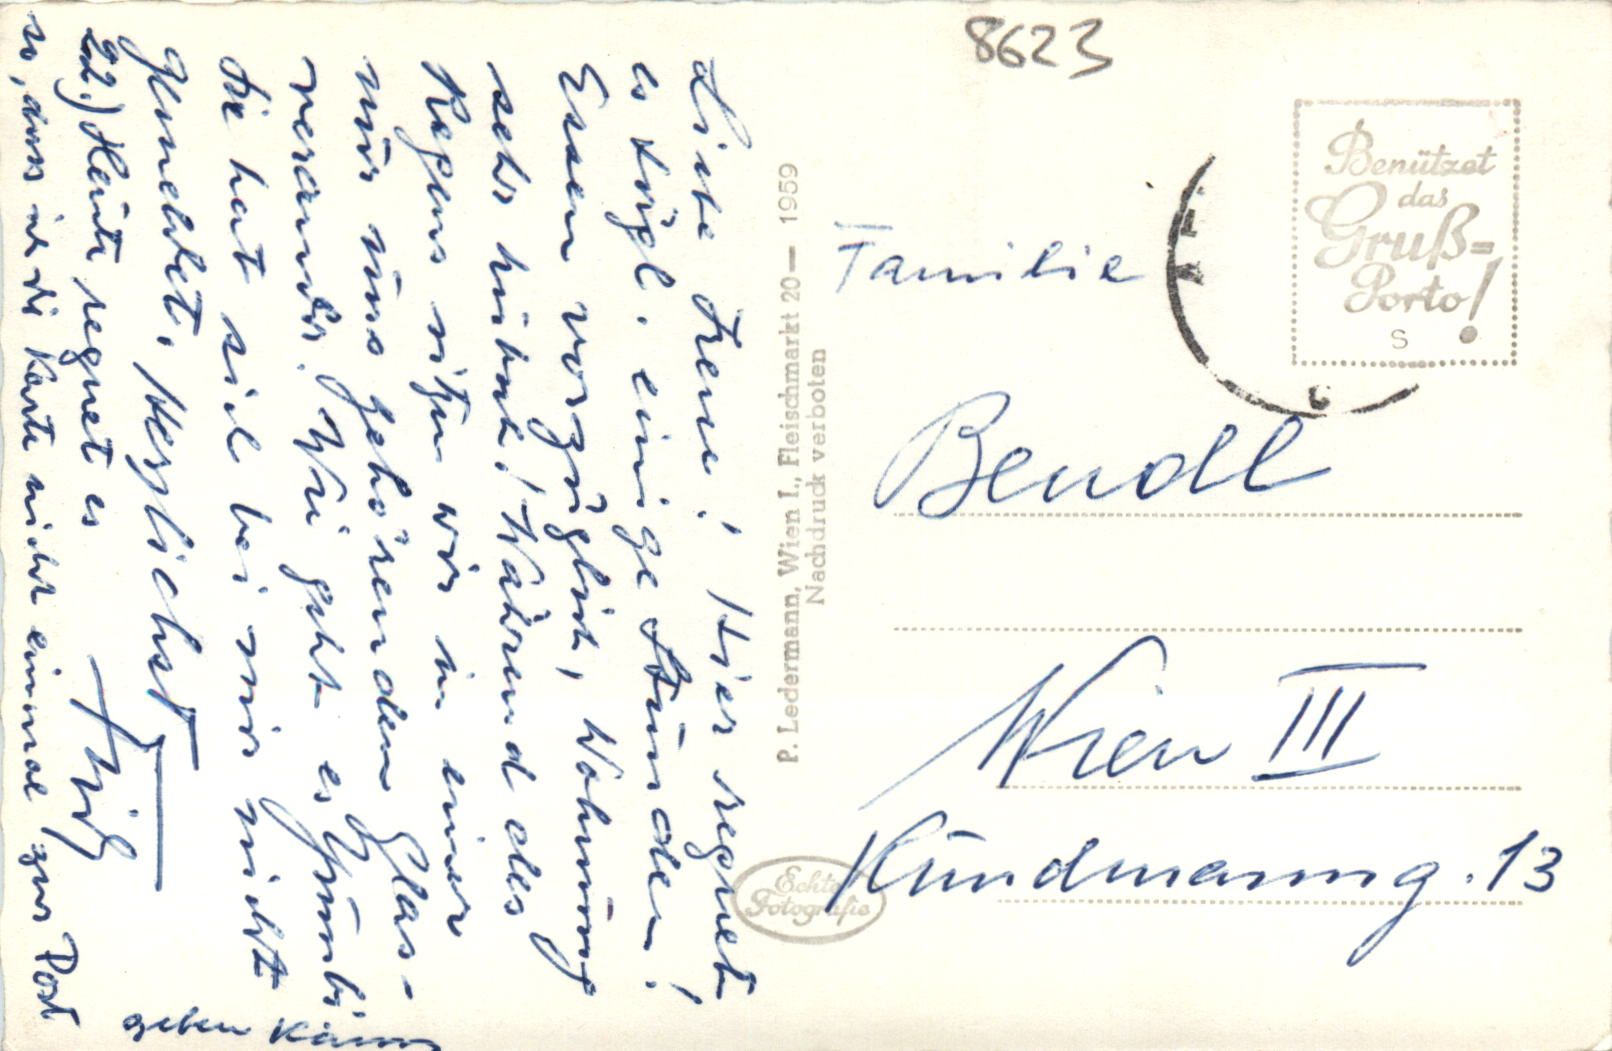 Liebe Irene! Hier regnet
es tägl. einige Stunden!
Essen vorzüglich, Wohnung
sehr hübsch! Während des
Regens sitzen wir in einer
nur uns gehörenden Glas-
veranda. Wie geht es
Sie hat sich bei mir nicht
gemeldet. Herzlichst
22.) Heute regnet es
so, dass ich die Karte nicht einmal zur Post
geben kann
P. Ledermann, Wien I., Fleischmarkt 20 — 1959
Nachdruck verboten
Echte
Fotografie
8623
Benützet
das
Gruß=
Porto!
S
Familie
Bendl
Wien III
Kundmanng. 13